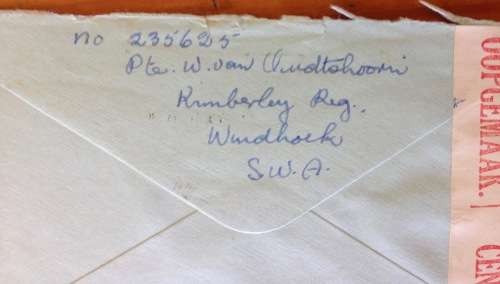 no 235625
Pte. W. van Oudtshoorn
Kimberley Reg.
Windhoek
S.W.A.
OOPGEMAAK. |
CEN